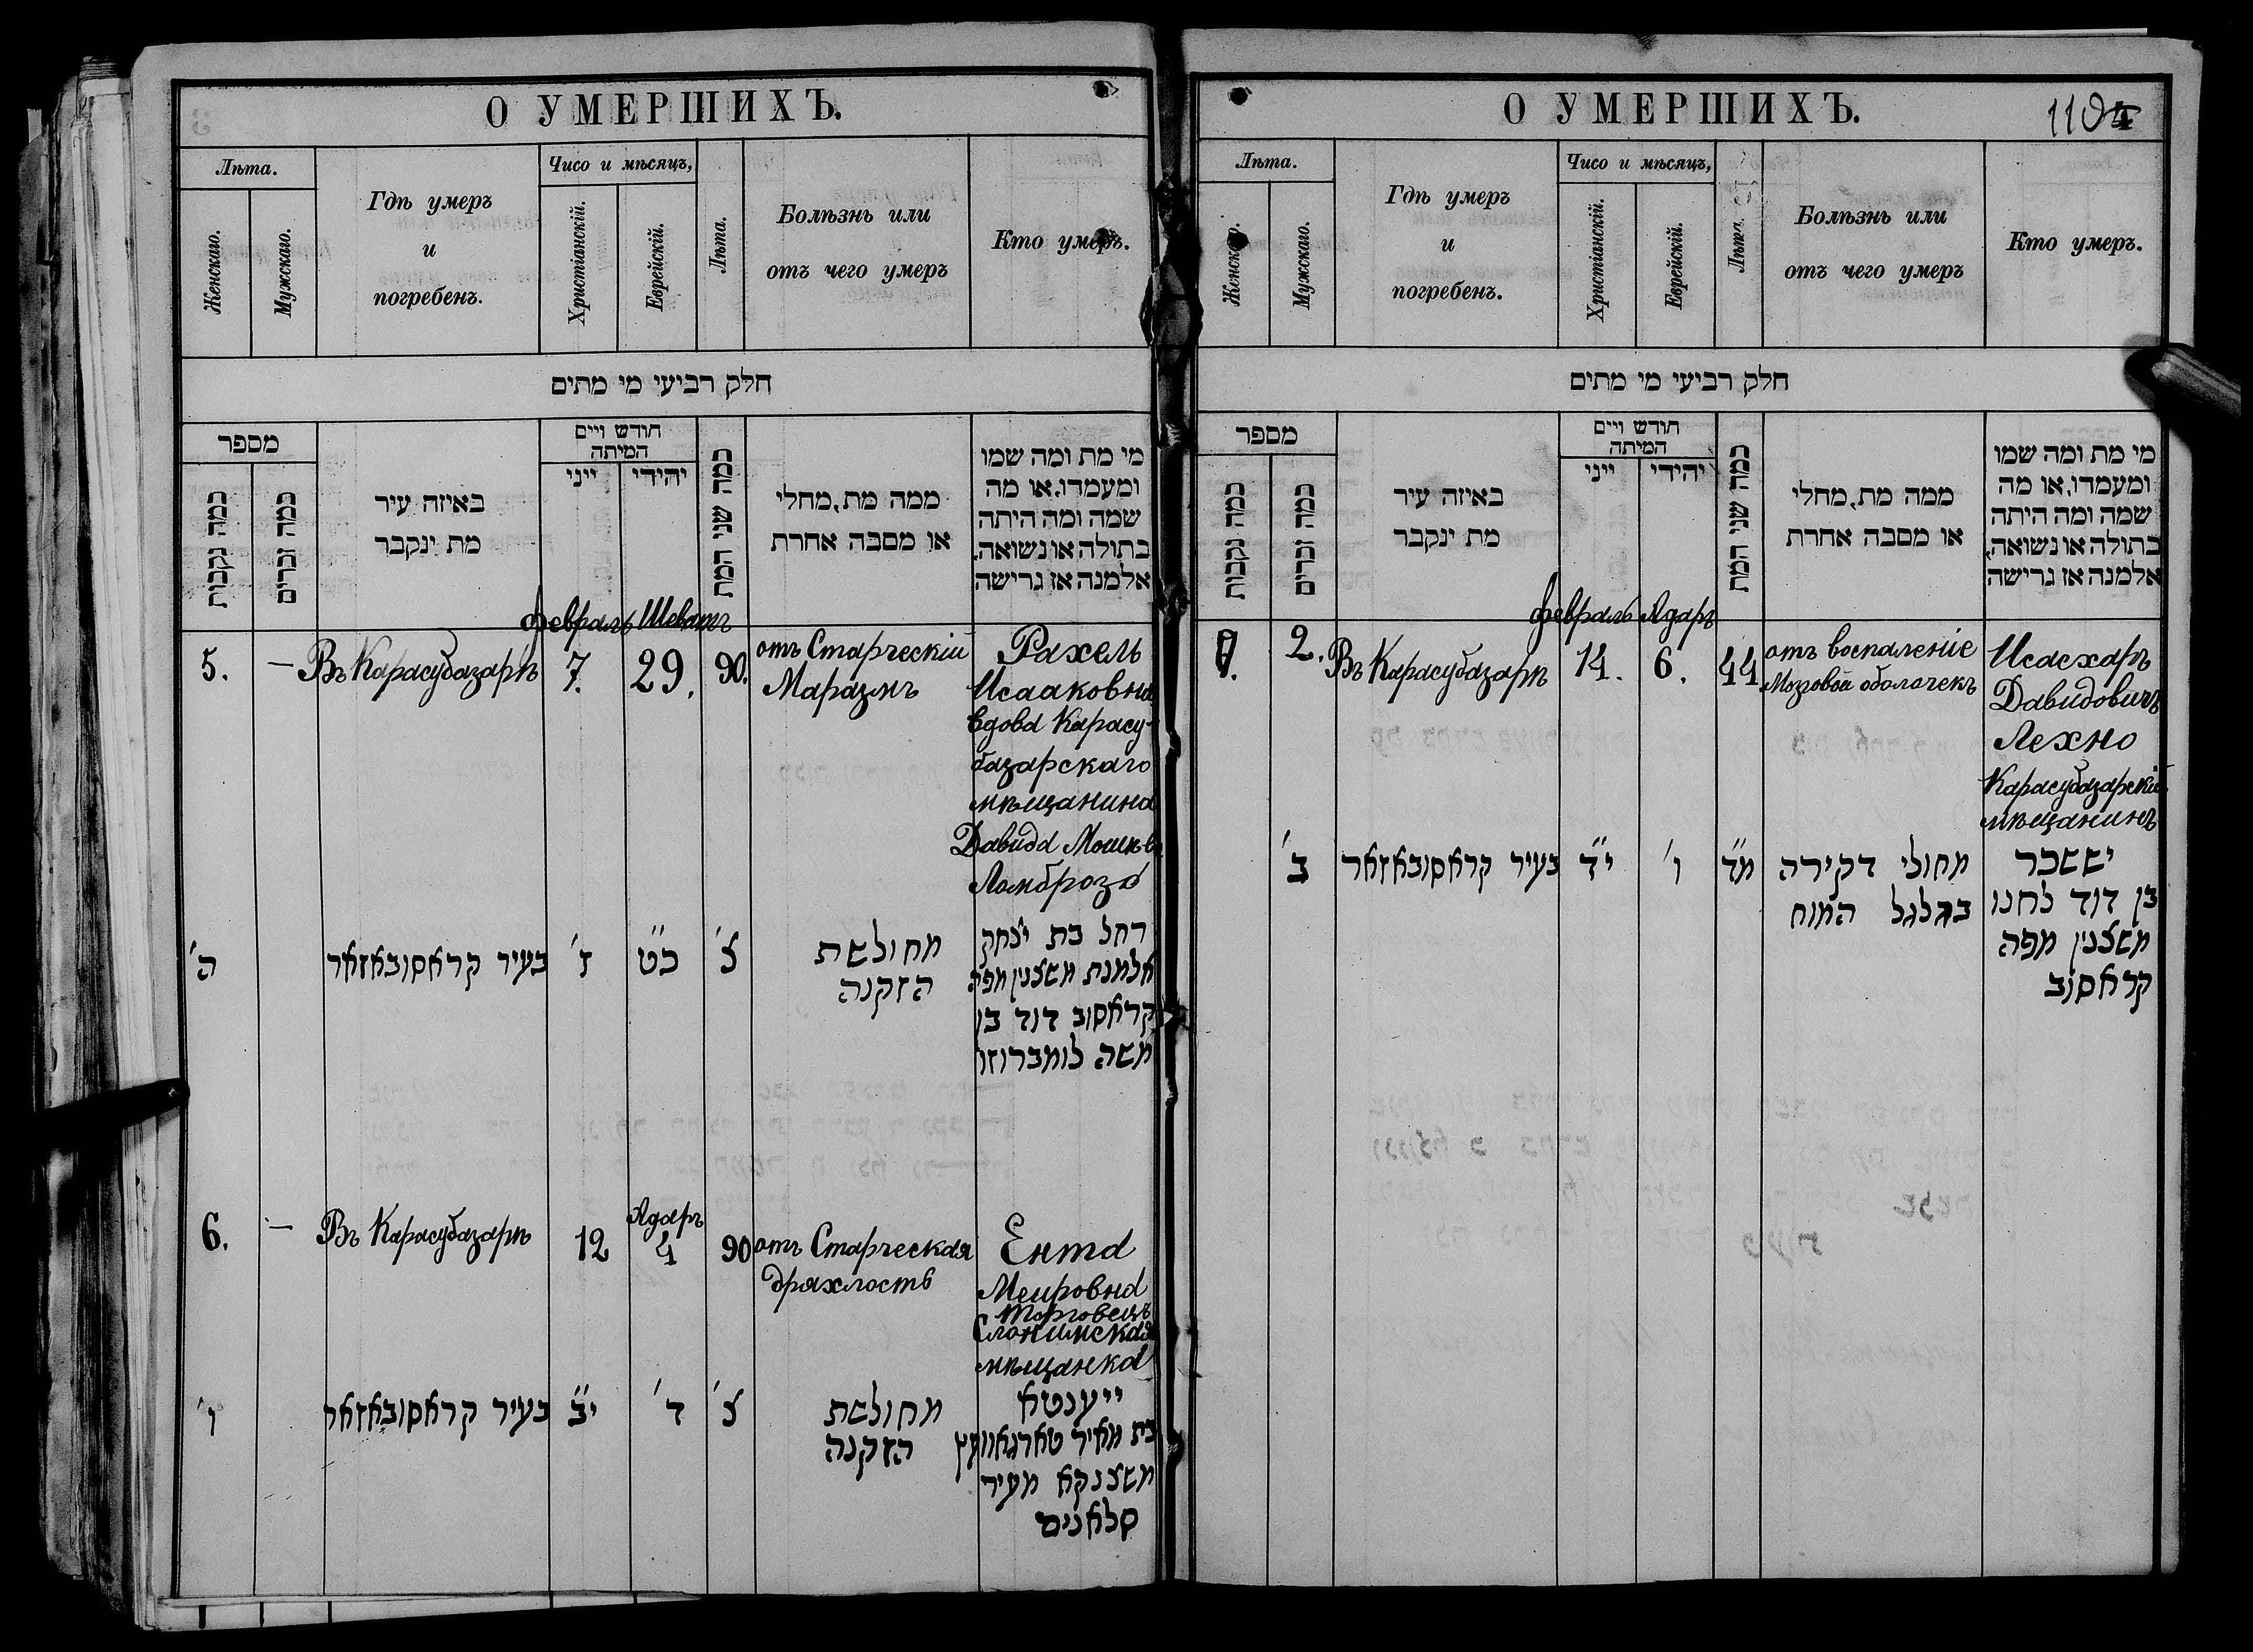 О УМЕРШИХЪ.
Лѣта.
Женскаго.
Мужскаго.
Гдѣ умеръ
и
погребенъ.
Чисо и мѣсяцъ,
Христіанскій.
Еврейскій.
Лѣта.
Болѣзнь или
отъ чего умеръ
Кто умеръ.
חלק רביעי מי מתים
מספר
כמה נקבות
כמה זכרים
באיזה עיר
מת ינקבר
חודש ויים
המיתה
ייני
יהידי
כמה שני המת
ממה מת, מחלי
או מסבה אחרת
מי מת ומה שמו
ומעמדו, או מה
שמה ומה היתה
בתולה או נשואה,
אלמנה אז גרישה
февраль Шеватъ
5. — Въ Карасубазарѣ 7. 29. 90.
отъ Старческій
Маразмъ
Рахель
Исааковна
вдова Карасу-
базарскаго
мѣщанина
Давида Мошков
Ломброзо
ה' בעיר קראסובאזאר ז' כ"ט צ'
מחולשת
הזקנה
רחל בת יצחק
אלמנת משצנין מפה
קראסוב דוד בן
משה לומברוזו
Адаръ
6. — Въ Карасубазарѣ 12 4 90
отъ Старческая
дряхлость
Ента
Меировна
Торговецъ
Слонимская
мѣщанка
ו' בעיר קראסובאזאר י"ב ד' צ'
מחולשת
הזקנה
ייענטא
בת מאיר טארגאוועץ
משצנקא מעיר
סלאנים
О УМЕРШИХЪ.
Лѣта.
Женскаго.
Мужскаго.
Гдѣ умеръ
и
погребенъ.
Чисо и мѣсяцъ,
Христіанскій.
Еврейскій.
Лѣта.
Болѣзнь или
отъ чего умеръ
Кто умеръ.
חלק רביעי מי מתים
מספר
כמה נקבות
כמה זכרים
באיזה עיר
מת ינקבר
חודש ויים
המיתה
ייני
יהידי
כמה שני המת
ממה מת, מחלי
או מסבה אחרת
מי מת ומה שמו
ומעמדו, או מה
שמה ומה היתה
בתולה או נשואה,
אלמנה אז גרישה
февраль Адаръ
2. Въ Карасубазарѣ 14. 6. 44
отъ воспаленіе
Мозговой оболочекъ
Исасхаръ
Давидовичъ
Лехно
Карасубазарскій
мѣщанинъ
ב' בעיר קראסובאזאר י"ד ו' מ"ד
מחולי דקירה
בגלגל המוח
יששכר
בן דוד לחנו
משצנין מפה
קראסוב